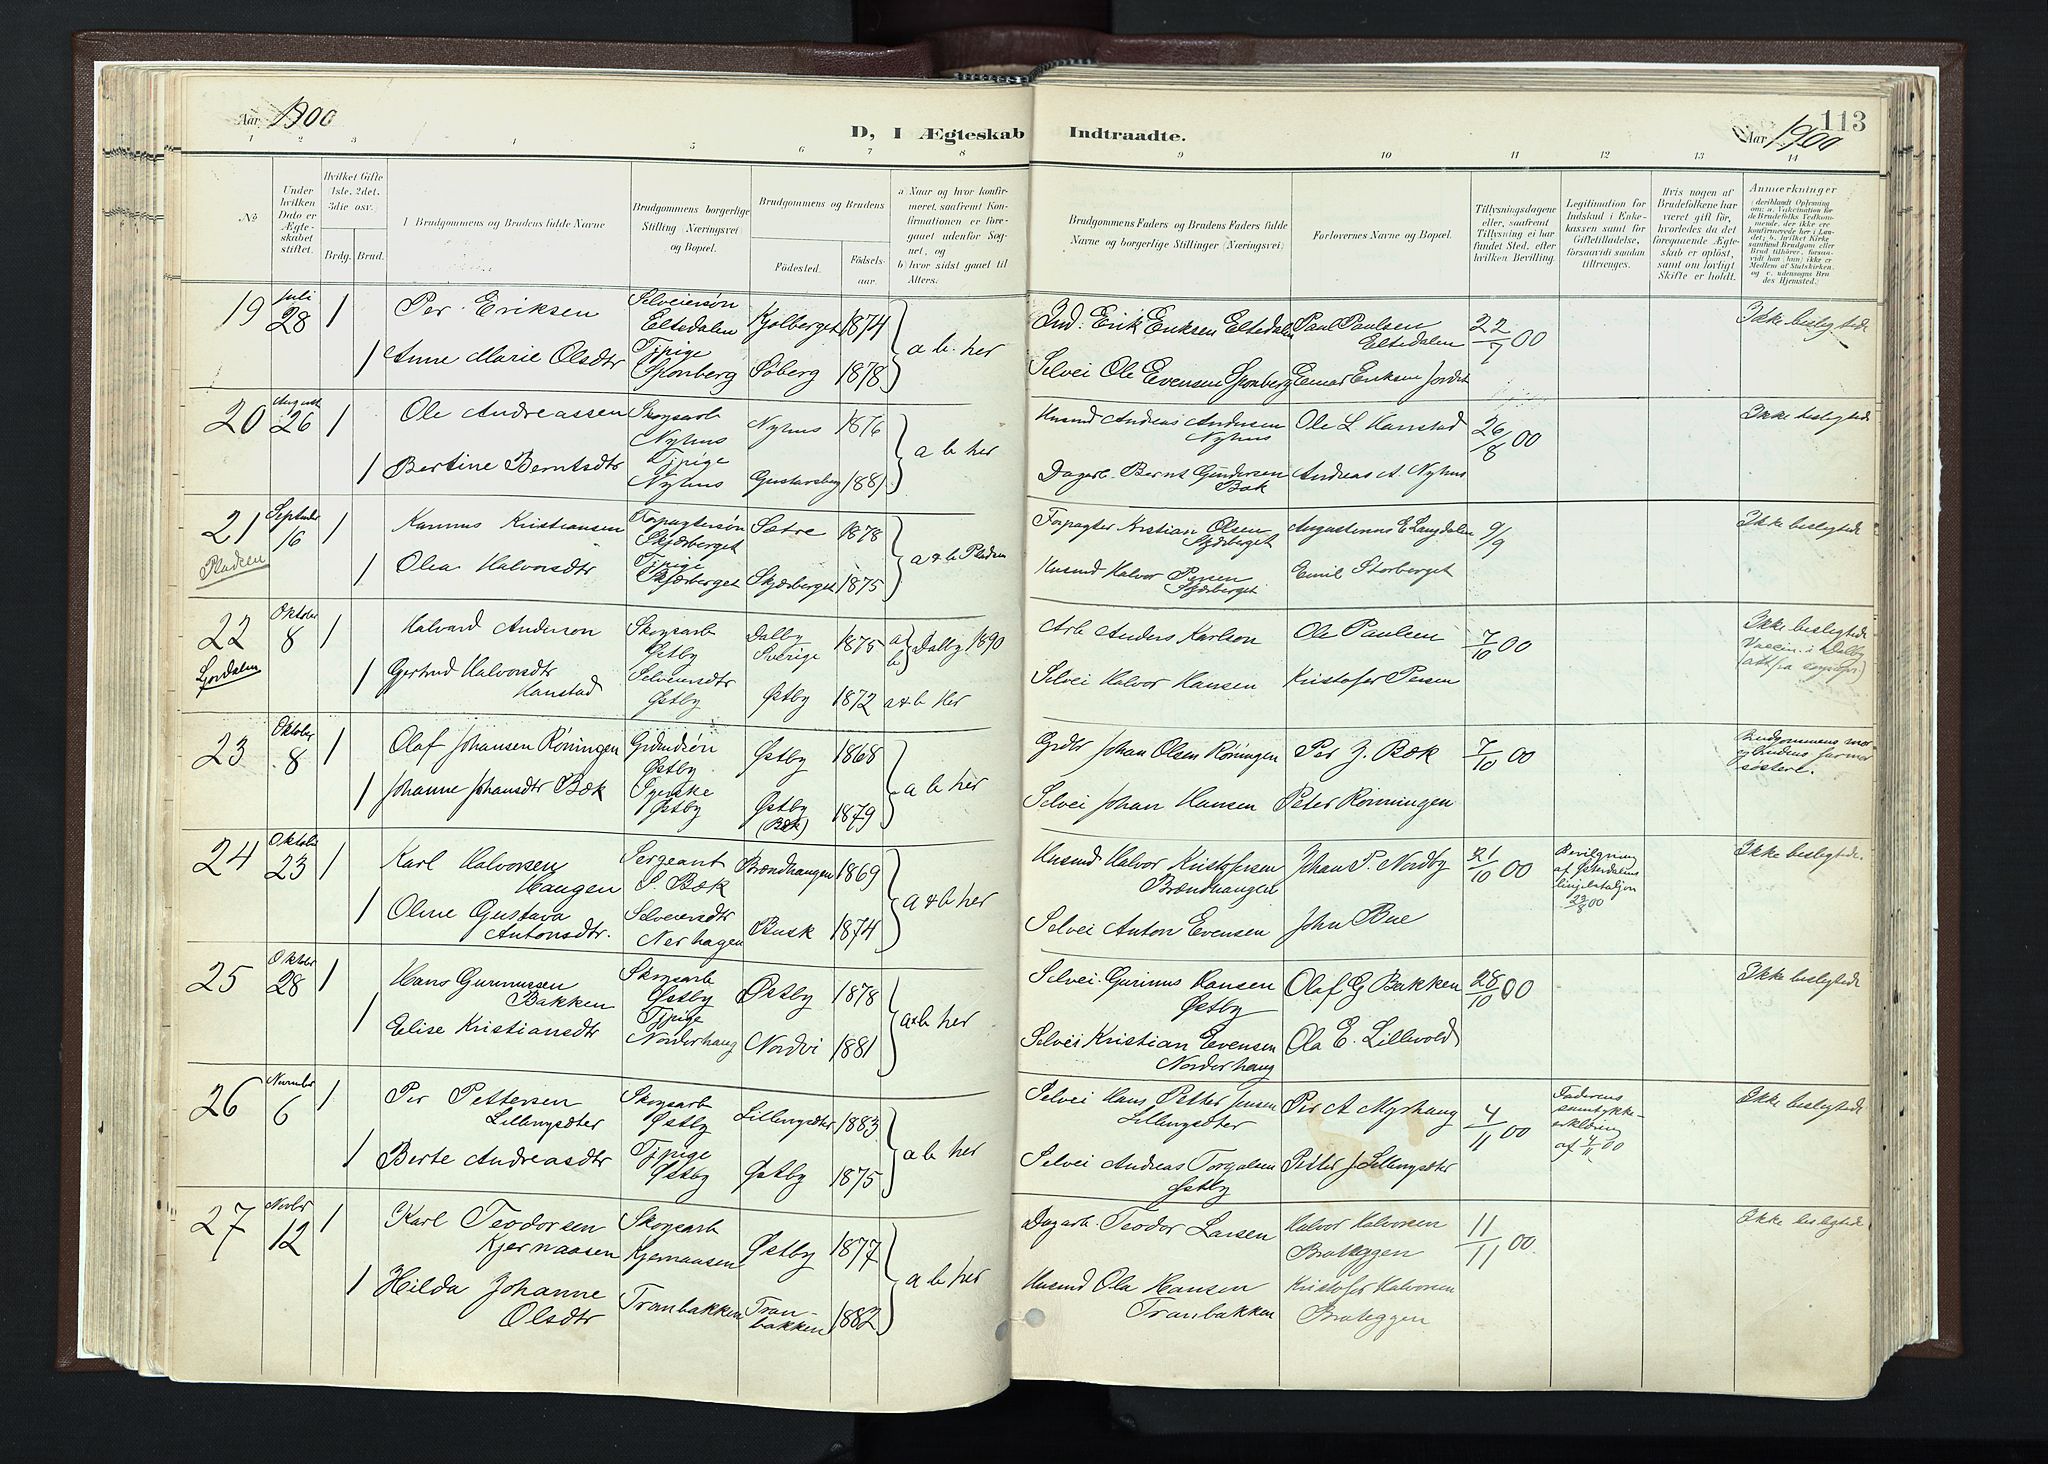 Aar 1900
D, I Ægteskab Indtraadte.
Aar 1900
113
1 2 3 4 5 6 7 8 9 10 11 12 13 14
No
Under hvilken Dato er Ægteskabet stiftet.
Hvilket Gifte 1ste, 2det, 3die osv.
Brdg. Brud.
Brudgommens og Brudens fulde Navne
Brudgommens borgerlige Stilling (Næringsvei) og Bopæl.
Brudgommens og Brudens
Fødested.
Fødselsaar.
a) Naar og hvor konfirmeret, saafremt Konfirmationen er foregaaet udenfor Sognet, og
b) hvor sidst gaaet til Alters.
Brudgommens Faders og Brudens Faders fulde Navne og borgerlige Stillinger (Næringsvei)
Forlovernes Navne og Bopæl.
Tillysningsdagene eller, saafremt Tillysning ei har fundet Sted, efter hvilken Bevilling.
Legitimation for Indskud i Enkekassen samt for Giftetilladelse, forsaavidt saadan tiltrænges.
Hvis nogen af Brudefolkene har været gift før, hvorledes du det foregaaende Ægteskab er opløst, samt om lovligt Skifte er holdt.
Anmærkninger
19 Juli 28 1 Per Eriksen Selveiersøn Eltsdalen Kjølberget 1874 a b. her Ind: Erik Eriksen Eltedalen Paul Paulsen Eltsdalen 22/7 00 Ikke beslegtede
1 Anne Marie Olsdtr Tjpige Sponberg Søberg 1878 Selvei Ole Evensen Sponberg Einar Eriksen Jordet
20 August 26 1 Ole Andreassen Skogsarb Nyhus Nyhus 1876 a b her Husmd Andreas Andersen Nyhus Ole L Hanstad 26/8 00 Ikke beslegtede
1 Bertine Berntsdtr Tjpige Nyhus Gustavsberg 1881 Dagarb. Bernt Gundersen Bæk Andreas A Nyhus
21 Septeder 16 1 Rasmus Kristiansen Forpagtersøn Skjærberget Sætre 1878 a & b Pladsen Forpagter Kristian Olsen Skjærberget Augustinus E Langdalen 9/9 Ikke beslegtede
Pladsen 1 Olea Halvorsdtr Tjpige Skjærberget Skjærberget 1875 Husmd Halvor Persen Skjærberget Emil Storberget
22 Oktober 8 1 Halvard Anderson Skogsarb Østby Dalby Sverige 1875 a b Dalby 1890 Arb Anders Karlson Ole Paulsen 7/10 00 Ikke beslegtede Vaccin. i Dalby
Ljordalen 1 Gjertrud Halvorsdtr Hanstad Selveiersdtr Østby Østby 1872 a & b Her Selvei Halvor Hansen Kristofer Persen
23 Oktober 8 1 Olaf Johansen Røningen Gjdmdsøn Østby Østby 1868 a b her Grdbr Johan Olsen Røningen Per J. Bæk 7/10 00 Brudgommens mor og Brudens farmor søstre.
1 Johanne Johansdtr Bæk Syerske Østby Østby (Bæk) 1879 Selvei Johan Hansen Peter Rønningen
24 Oktober 23 1 Karl Halvorsen Haugen Sergeant S. Bæk Brændhaugen 1869 a & b her Husmd Halvor Kristofersen Brændhaugen Johan P. Nordby 21/10 00 Bevilgning af Østerdalens linjebataljon 23/8 00 Ikke beslegtede.
1 Oline Gustava Antonsdtr. Selveiersdtr Nerhagen Busk 1874 Selvei Anton Evensen John Bue
25 Oktober 28 1 Hans Gunnussen Bakken Skogsarb Østby Østby 1878 a & b her Selvei. Gunnus Hansen Østby Olaf G Bakken 28/10 00 Ikke beslegtede
1 Elise Kristiansdtr Tjpige Norderhaug Nordvi 1881 Selvei Kristian Evensen Norderhaug Ola E. Lillevold
26 November 6 1 Per Pettersen Lillengsdter Skogsarb Østby Lillengsdter 1883 a b her Selvei Hans Petter Jensen Lillengsdter Per A Myrhaug 4/11 00 Faderens samtykkeerklæring af 4/11 00 Ikke beslegtede
1 Berte Andreasdtr Tjpige Østby Østby 1875 Selvei Andreas Torgalsen Østby Petter J Lillengsdter
27 Novbr 12 1 Karl Teodorsen Kjernaasen Skogsarb Kjernaasen Østby 1877 a b her Dagarb. Teodor Larsen Halvor Halvorsen Brateggen 11/11 00 Ikke beslegtede
1 Hilda Johanne Olsdtr Tranbakken Tranbakken 1882 Husmd Ola Hansen Tranbakken Kristofer Halvorsen Brateggen